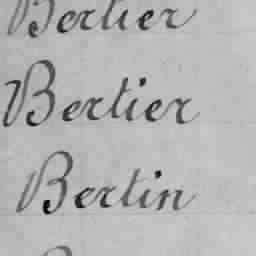 Bertier
Bertier
Bertin